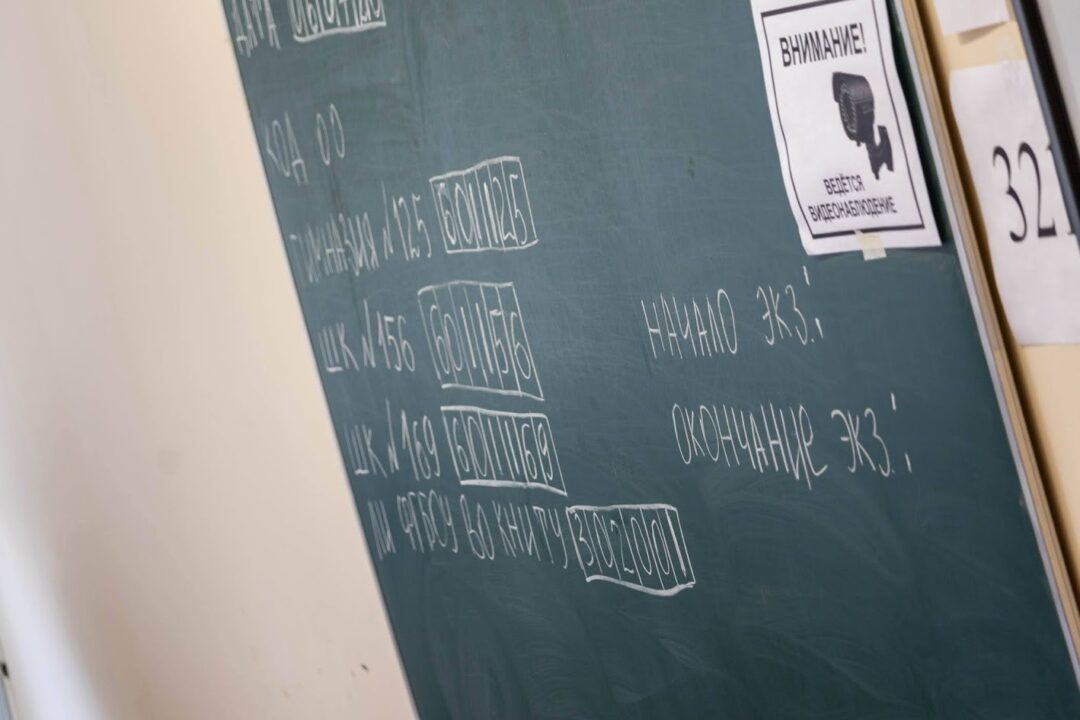 ДАТА
КОД 00
ГИМНАЗИЯ №125 601125
ШК №156 601156
ШК №169 601169
ЛИ ФГБОУ ВО КНИТУ 302001
НАЧАЛО ЭКЗ.:
ОКОНЧАНИЕ ЭКЗ.:
ВНИМАНИЕ!
ВЕДЁТСЯ
ВИДЕОНАБЛЮДЕНИЕ
321